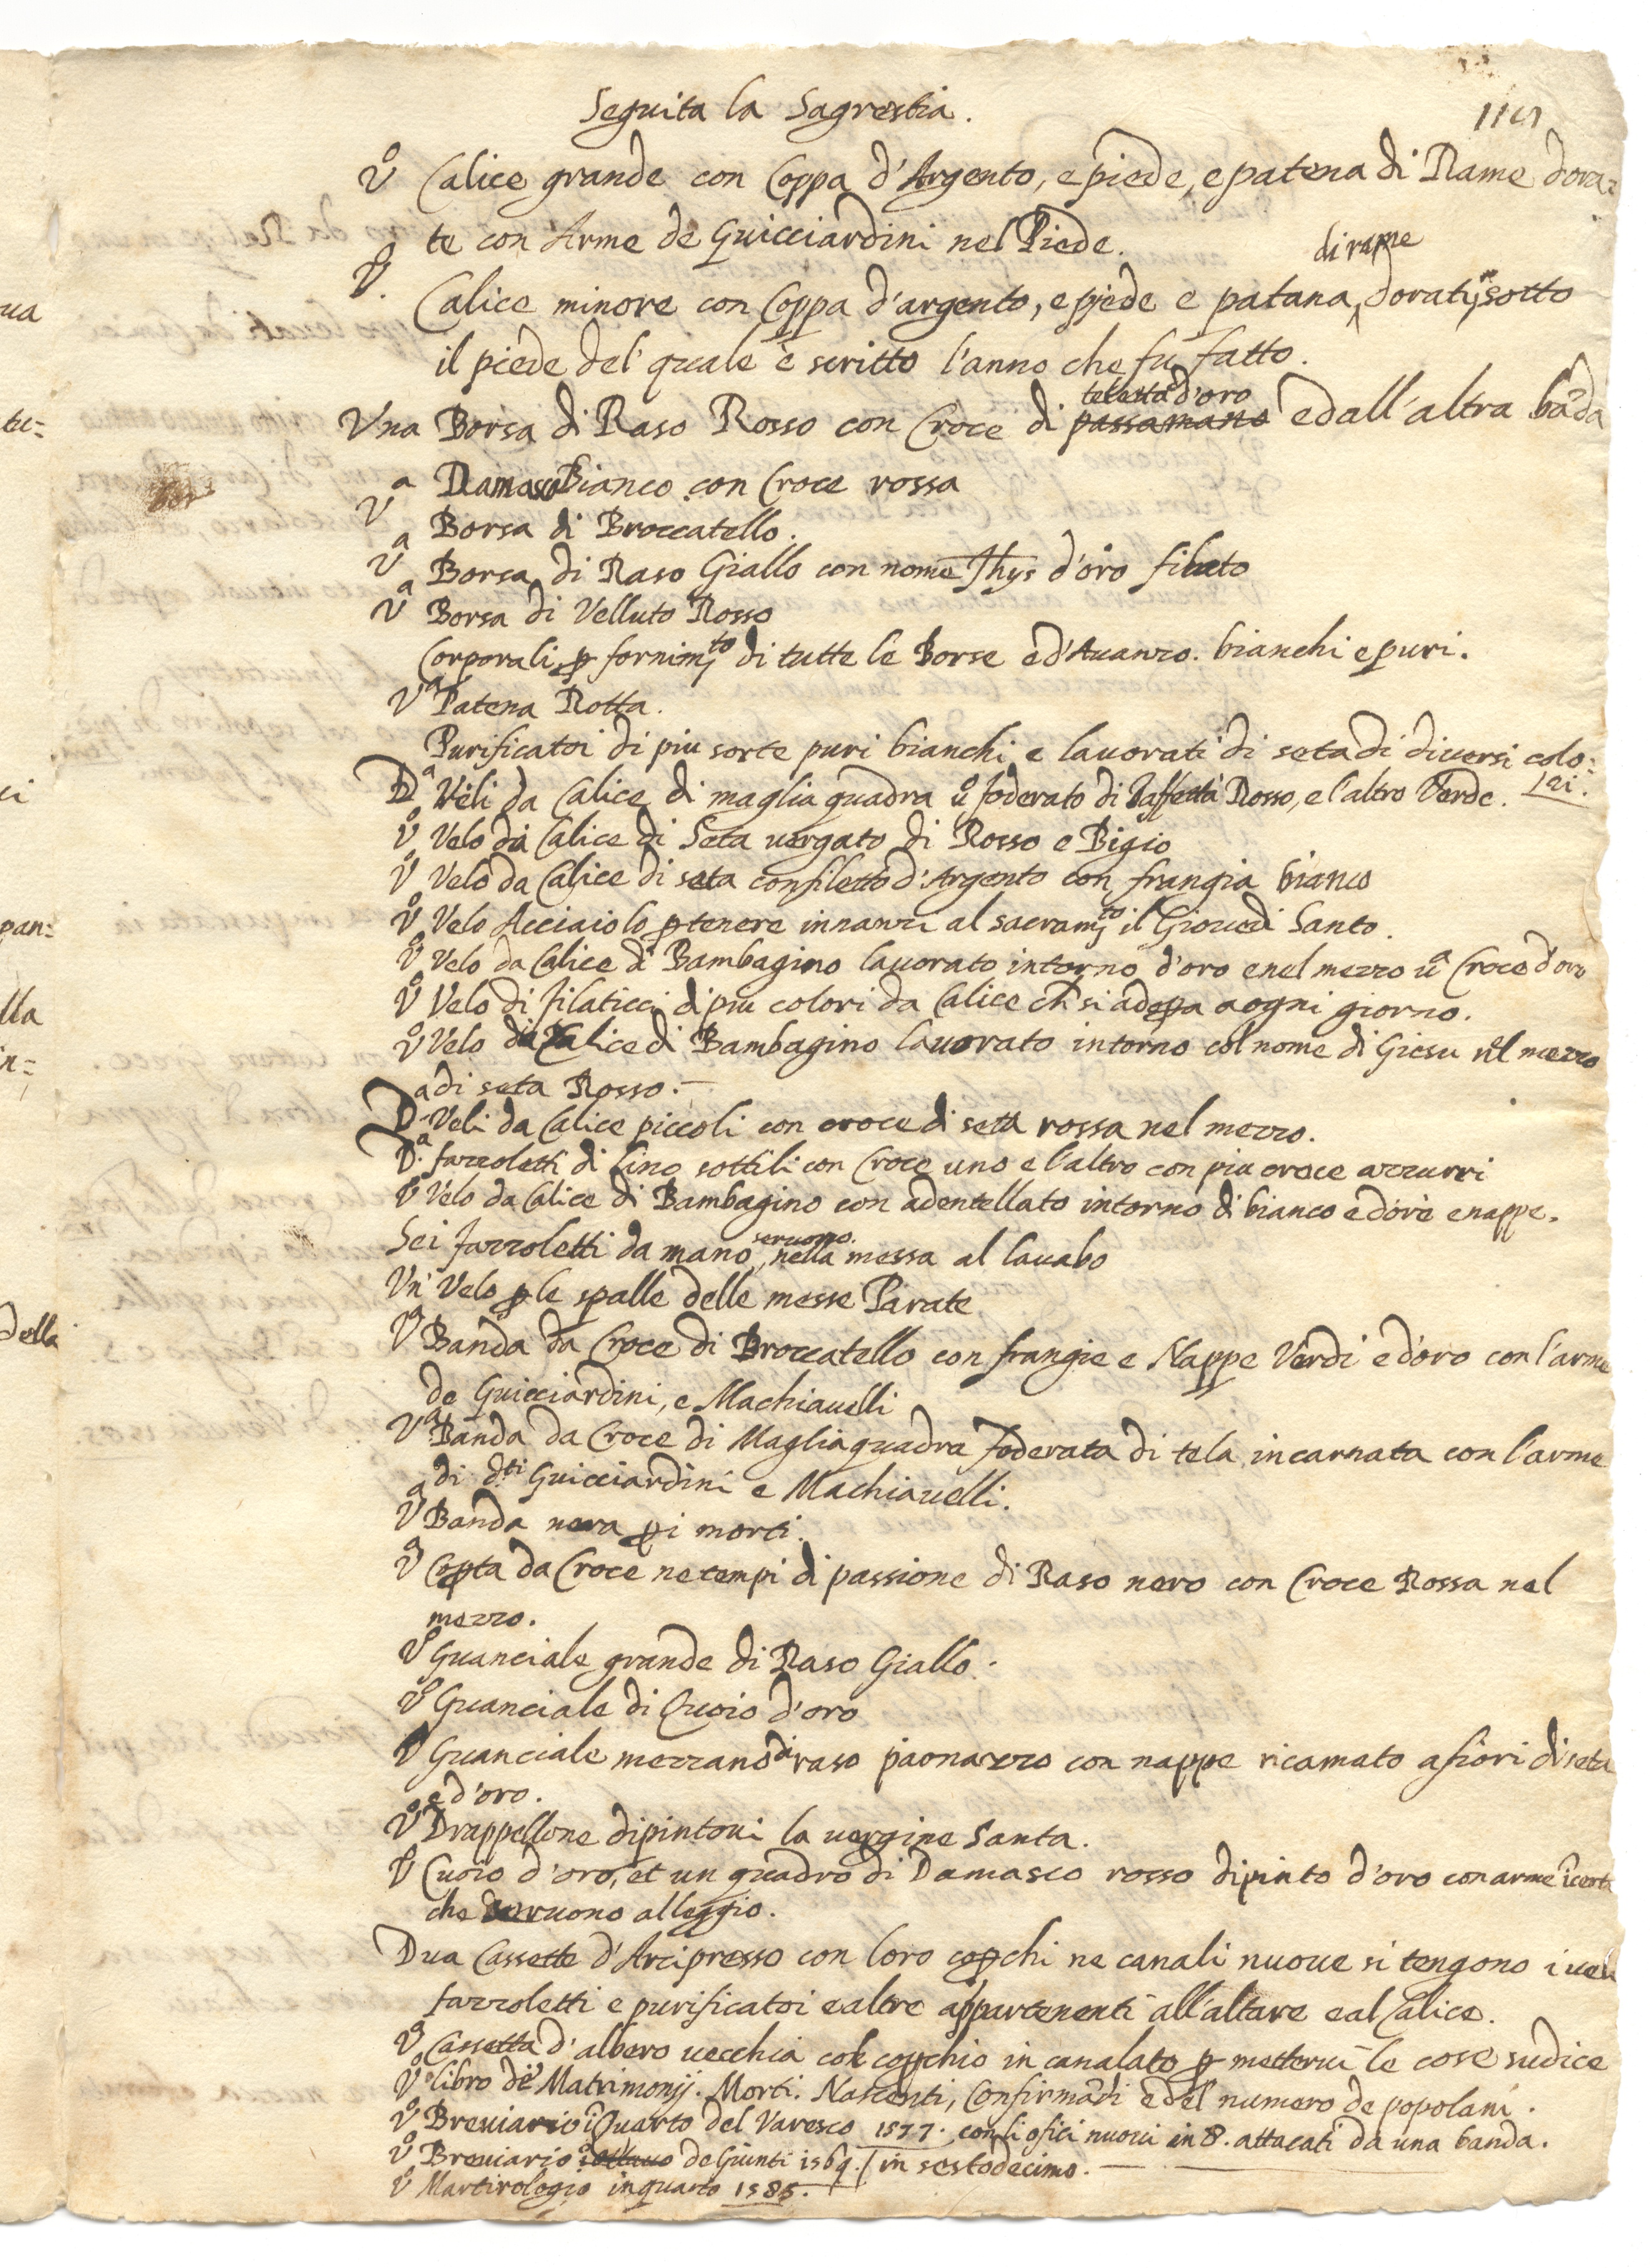 Seguita la Sagrestia.
Vº Calice grande con Coppa d'Argento, e piede, e patena di Rame dora=
te con Arme de Guicciardini nel Piede.
di rame
Vº. Calice minore con Coppa d'argento, e piede e patana, dorati, sotto
il piede del' quale è scritto l'anno che fu fatto.
teletta d'oro
Una Borsa di Raso Rosso con Croce di passamano e dall'altra bãda
Damasco Bianco con Croce rossa
Vª Borsa di Broccatello.
Vª Borsa di Raso Giallo con nome Jhys d'oro filato
Vª Borsa di Velluto Rosso
Corporali ꝑ fornimto di tutte le Borse e d'Auanzo. bianchi e puri.
Vª Patena Rotta.
Purificatoi di piu sorte puri bianchi e lauorati di seta di diuersi colo:
Dª Veli da Calice di maglia quadra uº foderato di Taffettà Rosso, e l'altro Verde. / ri.
Vº Velo da Calice di Seta uergato di Rosso e Bigio
Vº Velo da Calice di seta con filetto d'Argento con frangia bianco
Vº Velo Acciaiolo ꝑ tenere innanzi al sacramto il Giouedi Santo.
Vº Velo da Calice di Bambagino lauorato intorno d'oro e nel mezzo uª Croce d'oro
Vº Velo di filaticci di piu colori da Calice che si adopa a ogni giorno.
Vº Velo da Calice di Bambagino lauorato intorno col nome di Giesu nel mezzo
di seta Rosso.—
Dª Veli da Calice piccoli con croce di seta rossa nel mezzo.
Dª. fazzoletti di lino sottili con Croce uno e l'altro con piu croce azzurri
Vº Velo da Calice di Bambagino con adentellato intorno di bianco e d'oro e nappe.
seruono.
Sei fazzoletti da mano, nella messa al lauabo
Un' Velo ꝑ le spalle delle messe Parate
Vª Banda da Croce di Broccatello con frangie e Nappe Verdi e d'oro con l'arme
de Guicciardini, e Machiauelli
Vª Banda da Croce di Maglia quadra foderata di tela incarnata con l'arme
di d.ti Guicciardini e Machiauelli.
Vª Banda nera ꝑ i morti.
Vª Copta da Croce ne tempi di passione di Raso nero con Croce Rossa nel
mezzo.
Vº Guanciale grande di Raso Giallo.
Vº Guanciale di Cuoio d'oro
Vº Guanciale mezzano di raso paonazzo con nappe ricamato a fiori di seta
e d'oro.
Vº Drappellone dipintoui la uergine Santa.
Vº Cuoio d'oro, et un quadro di Damasco rosso dipinto d'oro con arme icerta
che seruono alleggio.
Dua Cassette d'Arcipresso con loro copchi ne canali nuoue si tengono i ueli
fazzoletti e purificatoi e altre appartenenti all'altare e al Calice.
Vª Cassetta d'albero uecchia col copchio in canalato ꝑ metterui le cose sudice
Vº libro de Matrimonij. Morti. Nascenti, Confirmati e del numero de popolani.
Vº Breuiario i Quarto del Varesco 1577. con li ofici nuoui in 8. attacati da una banda.
Vº Breuiario i ottauo de Giunti 1569. / in sestodecimo.
Vº Martirologio in quarto 1585.